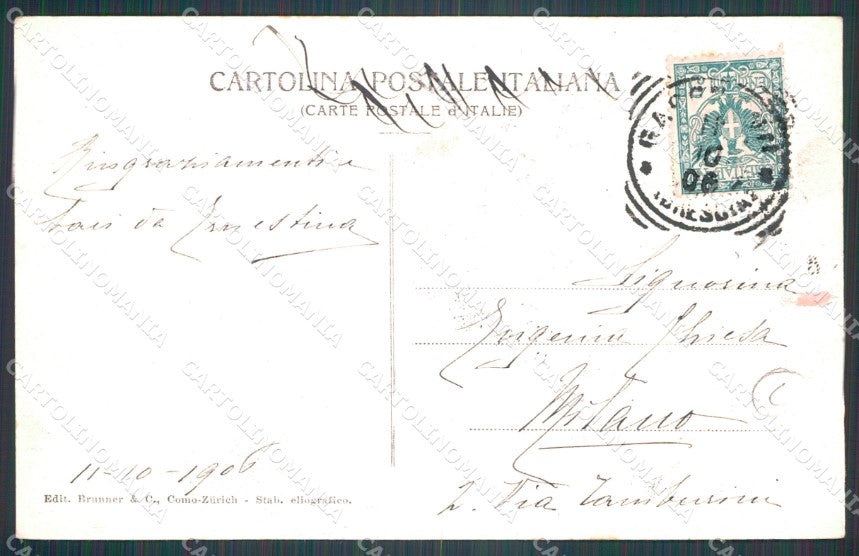 CARTOLINA POSTALE ITALIANA
(CARTE POSTALE d'ITALIE)
Ringraziamenti e
baci da Ernestina
Signorina
Eugenia Chiesa
Milano
2. Via Tamburini
11-10-1906
Edit. Brunner & C., Como-Zürich - Stab. eliografico.
10
06
(BRESCIA)
CARTOLINOMANIA